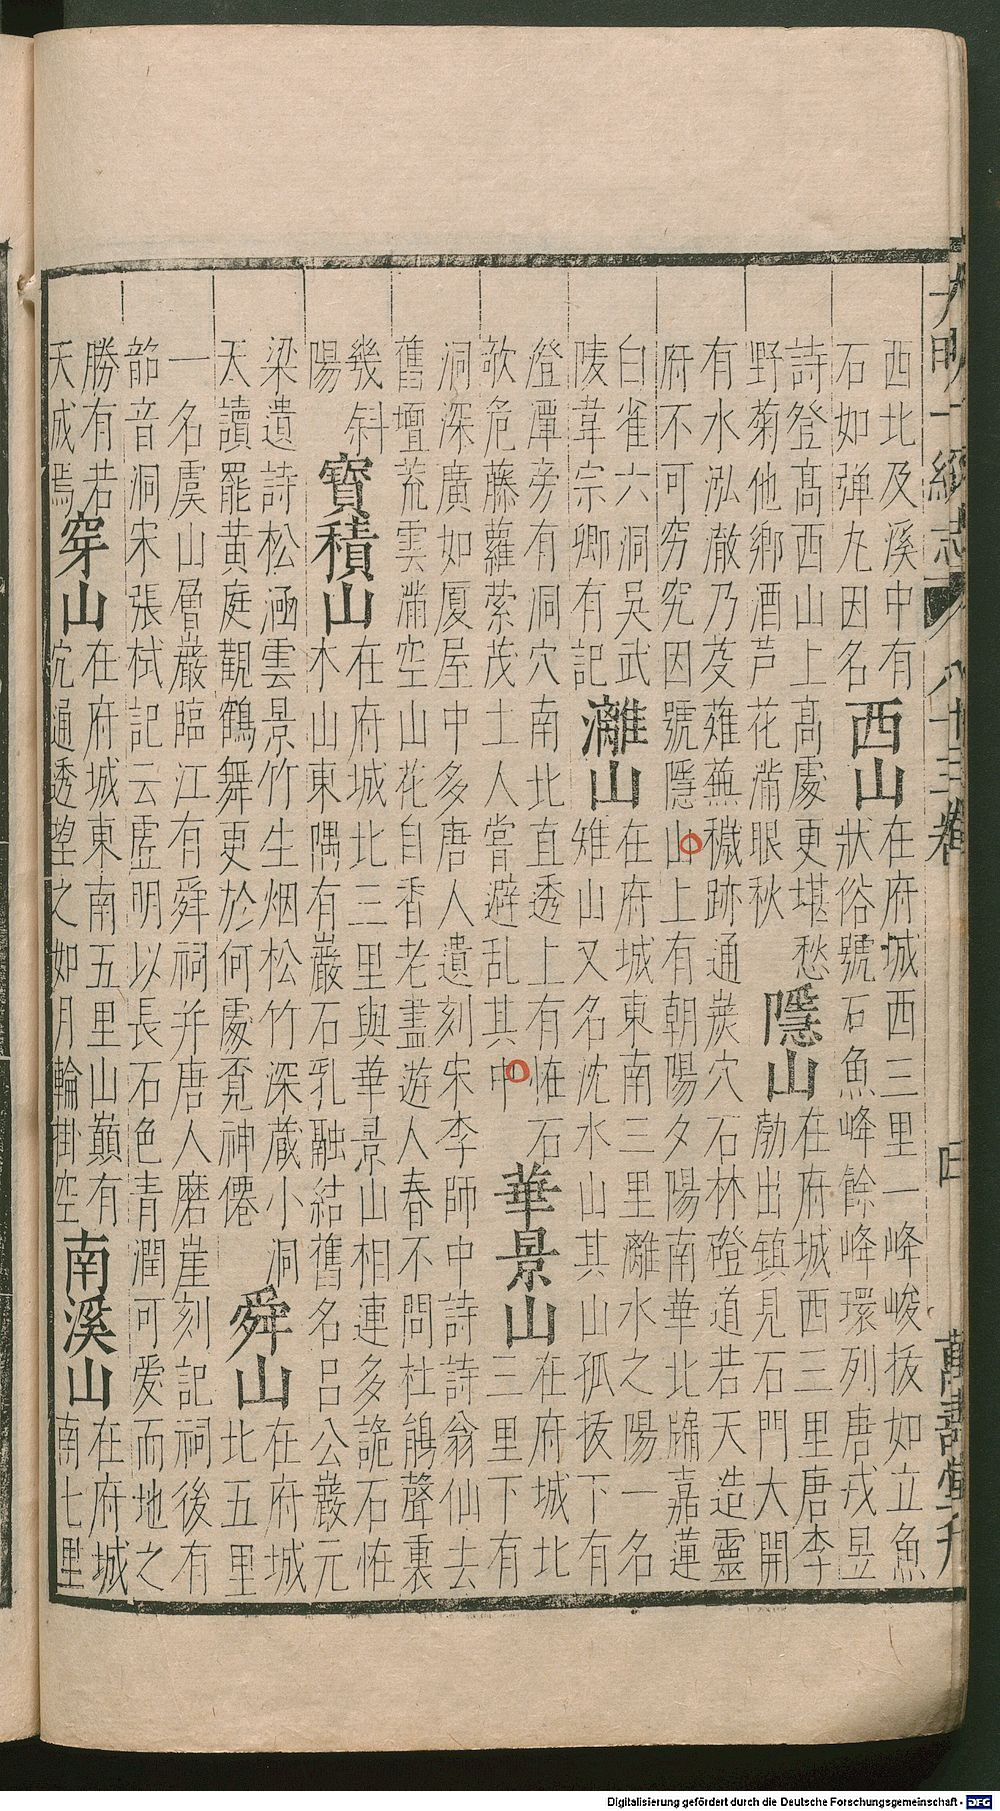 大明一統志 八十三卷 四 萬壽堂刋
西北及溪中有
石如弾丸因名
西山
在府城西三里一峰峻拔如立魚
狀俗號石魚峰餘峰環列唐戎昱
詩登髙西山上髙處更堪愁
野菊他鄉酒芦花滿眼秋
隱山
在府城西三里唐李
渤出鎮見石門大開
有水泓澈乃芟薙蕪穢跡通巖穴石林磴道若天造靈
府不可穷究因號隱山上有朝陽夕陽南華北牖嘉蓮
白雀六洞吳武
陵韋宗卿有記
灕山
在府城東南三里灕水之陽一名
雉山又名沈水山其山孤拔下有
澄潭旁有洞穴南北直透上有恠石
欹危藤蘿縈茂土人嘗避乱其中
華景山
在府城北
三里下有
洞深廣如厦屋中多唐人遺刻宋李師中詩詩翁仙去
舊壇荒雲滿空山花自香老盡遊人春不問杜鵑聲裏
幾斜
陽
寳積山
在府城北三里與華景山相連多詭石恠
木山東隅有巖石乳融結舊名呂公巖元
梁遺詩松涵雲景竹生烟松竹深藏小洞
天讀罷黄庭觀鶴舞更於何處覔神僊
舜山
在府城
北五里
一名虞山層巖臨江有舜祠并唐人磨崖刻記祠後有
韶音洞宋張栻記云虚明以長石色青潤可爱而地之
勝有若
天成焉
穿山
在府城東南五里山巔有
穴通透望之如月輪掛空
南溪山
在府城
南七里
Digitalisierung gefördert durch die Deutsche Forschungsgemeinschaft - DFG